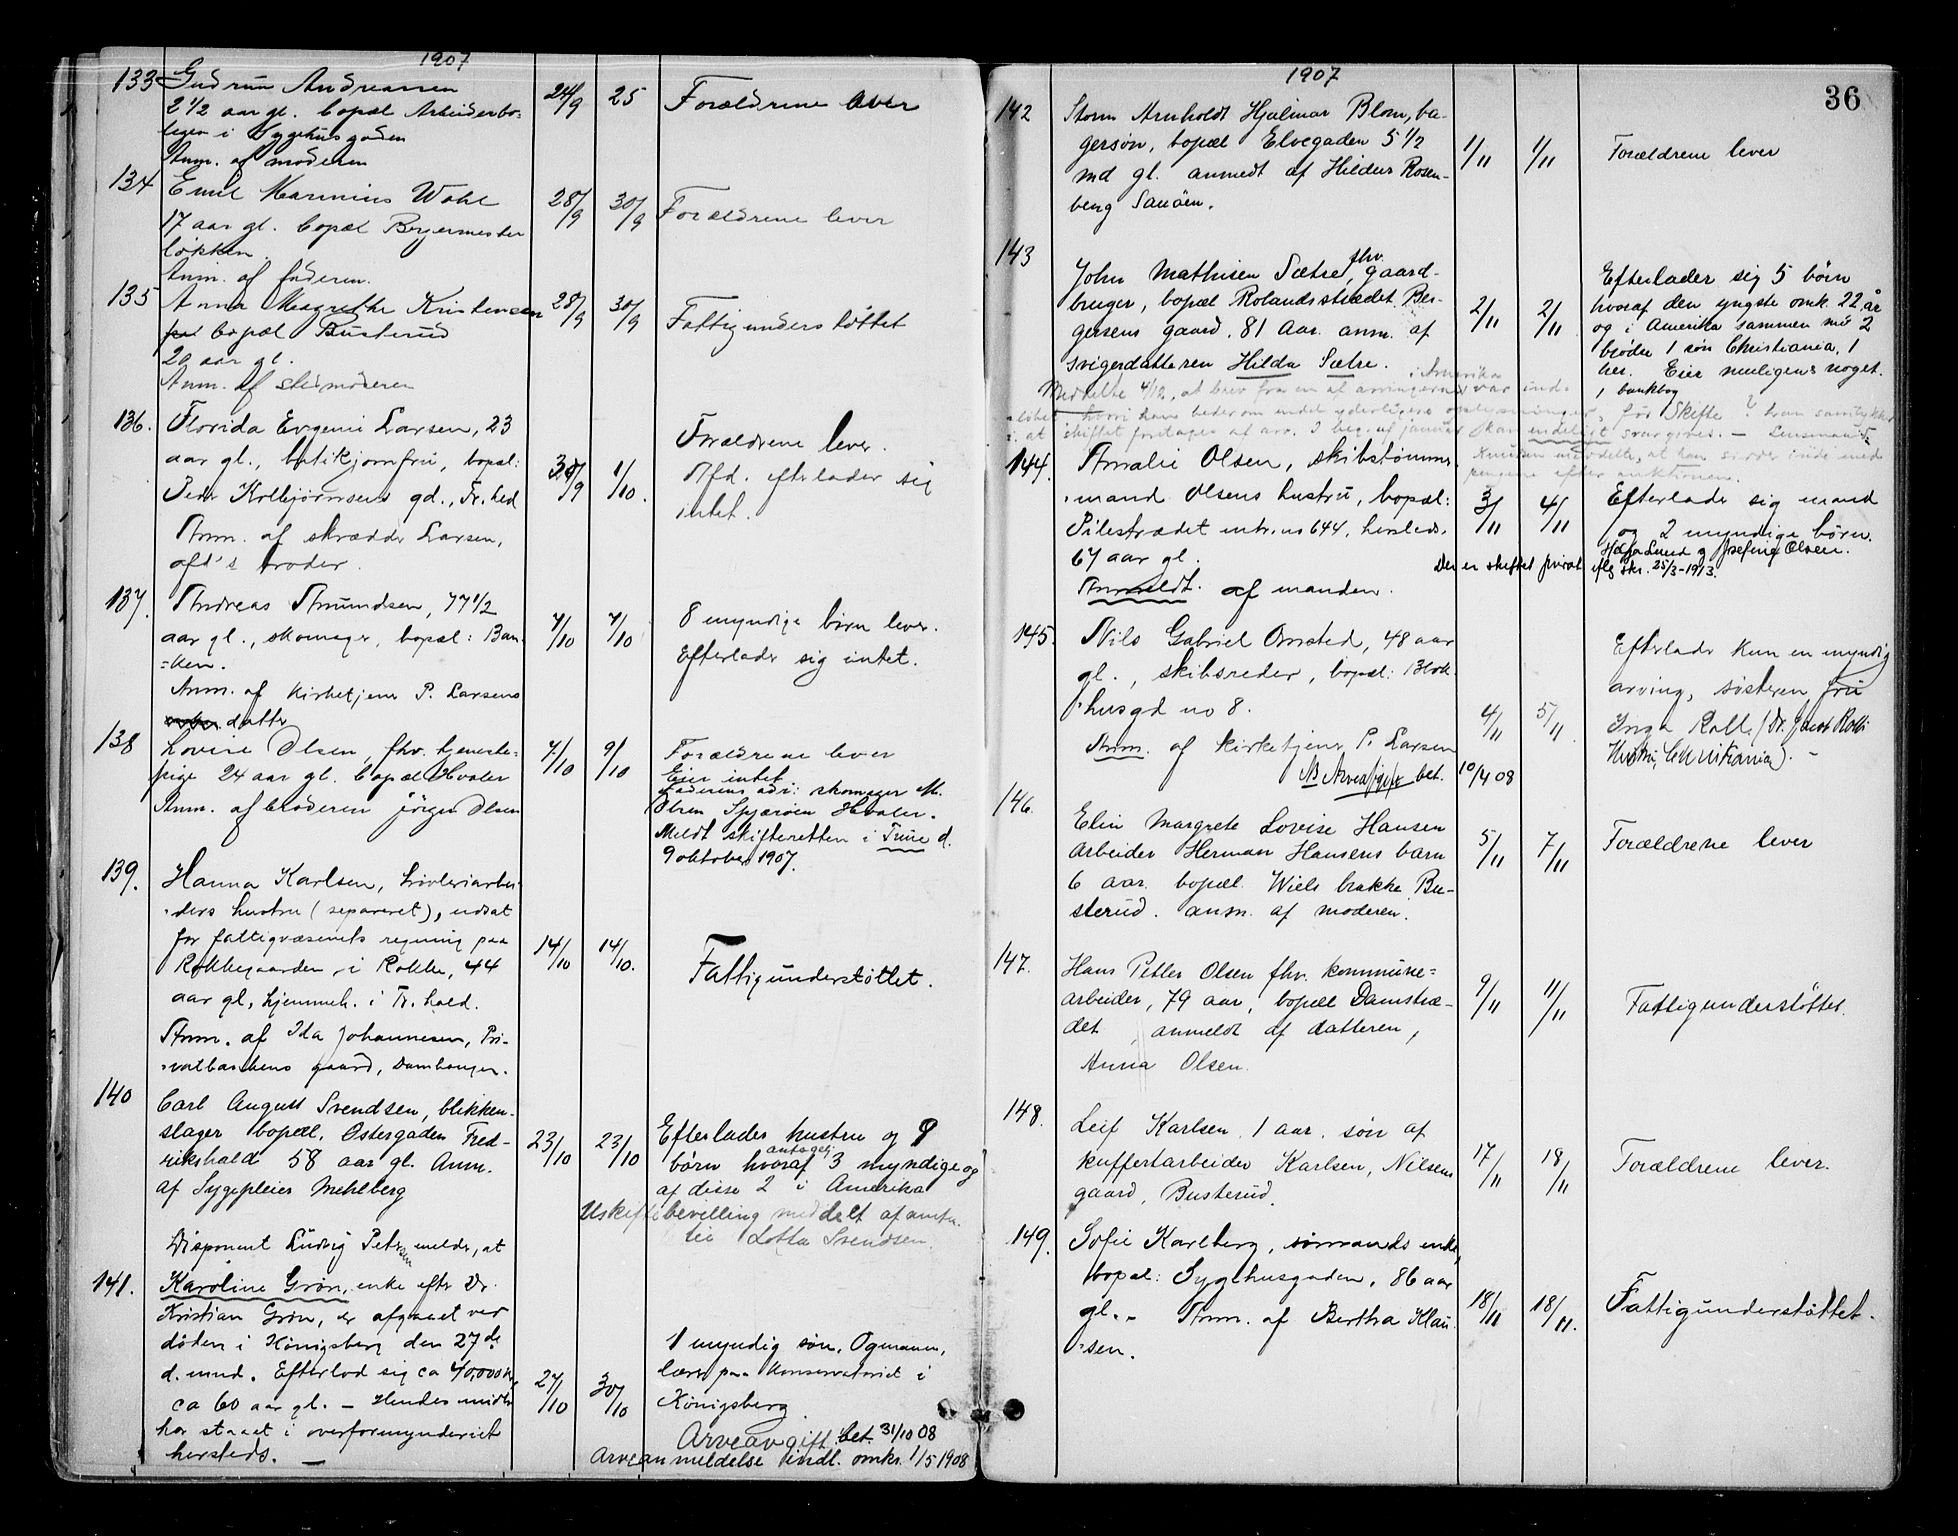 1907
133 Gudrun Andreassen
2 1/2 aar gl. bopæl Arbeiderbo-
ligen i Sygehusgaden
Anm. af moderen
24/9 25
Forældrene lever
134 Emil Marinius Wahl
17 aar gl. bopæl Borgermester
løkken
Anm. af faderen.
28/9 30/9
Forældrene lever
135 Anna Magrethe Kristensen
bopæl Busterud
20 aar gl.
Anm. af stedmoderen
28/9 30/9
Fattigunderstøttet
136. Florida Evgenie Larsen, 23
aar gl., butikjomfru, bopæl:
Peder Kolbjørnsens gd., Fr.hald
Anm. af skrædder Larsen,
afd's broder.
30/9 1/10.
Forældrene lever.
Afd. efterlader sig
intet.
137. Andreas Amundsen, 77 1/2
aar gl., skomager, bopæl: Ban-
=ken.
Anm. af kirketjener P. Larsens
datter
7/10 7/10
8 myndige børn lever.
Efterlader sig intet.
138 Lovise Olsen, fhv. tjeneste-
pige 24 aar gl. bopæl Hvaler
Anm. af broderen Jørgen Olsen
7/10 9/10
Forældrene lever
Eier intet.
Faderens adr: skomager M.
Olsen Spjærøen Hvaler.
Meldt skifteretten i Tune d.
9 oktober 1907.
139. Hanna Karlsen, høvleriarbei-
ders hustru (separeret), udsat
for fattigvæsenets regning paa
Rokkegaarden i Rokke, 44
aar gl, hjemmeh. i Fr.hald.
Anm. af Ida Johannesen, Pri-
vatbankens gaard, Damhaugen.
14/10 14/10.
Fattigunderstøttet.
140 Carl August Svendsen, blikken-
slager bopæl. Østergaden Fred-
rikshald 58 aar gl. Anm.
af Sygepleier Mehlberg
23/10 23/10
Efterlader hustru og 9
børn hvoraf antagelig 3 myndige og
af disse 2 i Amerika
Uskiftebevilling meddelt af amtm.
til Lotta Svendsen.
Disponent Ludvig Petersen melder, at
141. Karoline Grøn, enke efter Dr.
Kristian Grøn, er afgaaet ved
døden i Königsberg den 27de
d. mnd. Efterlod sig ca 40,000 kr,
ca 60 aar gl. – Hendes midler
har staaet i overformynderiet
hersteds. —
27/10 30/10
1 myndig søn,
lærer paa Konservatoriet i
Königsberg
Arveavgift bet. 31/10 08
Arveanmeldelse indl. omkr. 1/5 1908
1907
36
142 Storm Arnholdt Hjalmar Blom, ba-
gersøn, bopæl Elvegaden 5 1/2
md gl. anmedt af Hildur Rosen-
berg Sauøen.
1/11 1/11
Forældrene lever
143 John Mathisen Sætre, fhv. gaard-
bruger, bopæl Rolandsstrædet Ber-
gersens gaard. 81 Aar. anm. af
svigerdatteren Hilda Sætre.
2/11 2/11
Efterlader sig 5 børn
hvoraf den yngste omk. 22 år
og i Amerika sammen med 2
brødre 1 søn Christiania, 1
her. Eier muligens noget.
1 bankbog
Meddelte 4/12, at brev fra en af arvingerne i Amerika var ind-
løbet, hvori han beder om endel yderligere oplysninger, før Skifte
i at skiftet foretages af arv. I beg. af januar skal endeligt svar gives. – Lensmand
144. Amalie Olsen, skibstømmer-
mand Olsens hustru, bopæl:
Pilestrædet mtr. no 644, hersteds,
67 aar gl.
Anmeldt af manden.
3/11 4/11
Efterlader sig mand
og 2 myndige børn.
Helga Lund og Josefine Olsen.
Der er skiftet privat iflg skr. 25/3-1913.
145. Nils Gabriel Omsted, 48 aar
gl., skibsreder, bopæl: Blok-
husgd no 8.
Anm. af kirketjener P. Larsen
4/11 5/11
Efterlader kun en myndig
arving, søsteren fru
Inga Roll, (Dr. Jacob Rolls
Hustru, Christiania). –
NB Arveafgift bet. 10/4 08
146. Elin Margrete Lovise Hansen
Arbeider Herman Hansens barn
6 aar. bopæl. Wiels brakke Bu-
sterud. anm. af moderen.
5/11 7/11
Forældrene lever
147. Hans Petter Olsen fhv. kommune=
arbeider, 79 aar, bopæl Damstræ-
det, anmeldt af datteren,
Anna Olsen.
9/11 11/11
Fattigunderstøttet.
148. Leif Karlsen. 1 aar. søn af
kuffertarbeider Karlsen, Nilsens
gaard, Busterud.
17/11 18/11
Forældrene lever.
149. Sofie Karlberg, sømands enke,
bopæl: Sygehusgaden, 86 aar
gl.. – Anm. af Bertha Klau-
sen.
18/11 18/11.
Fattigunderstøttet.